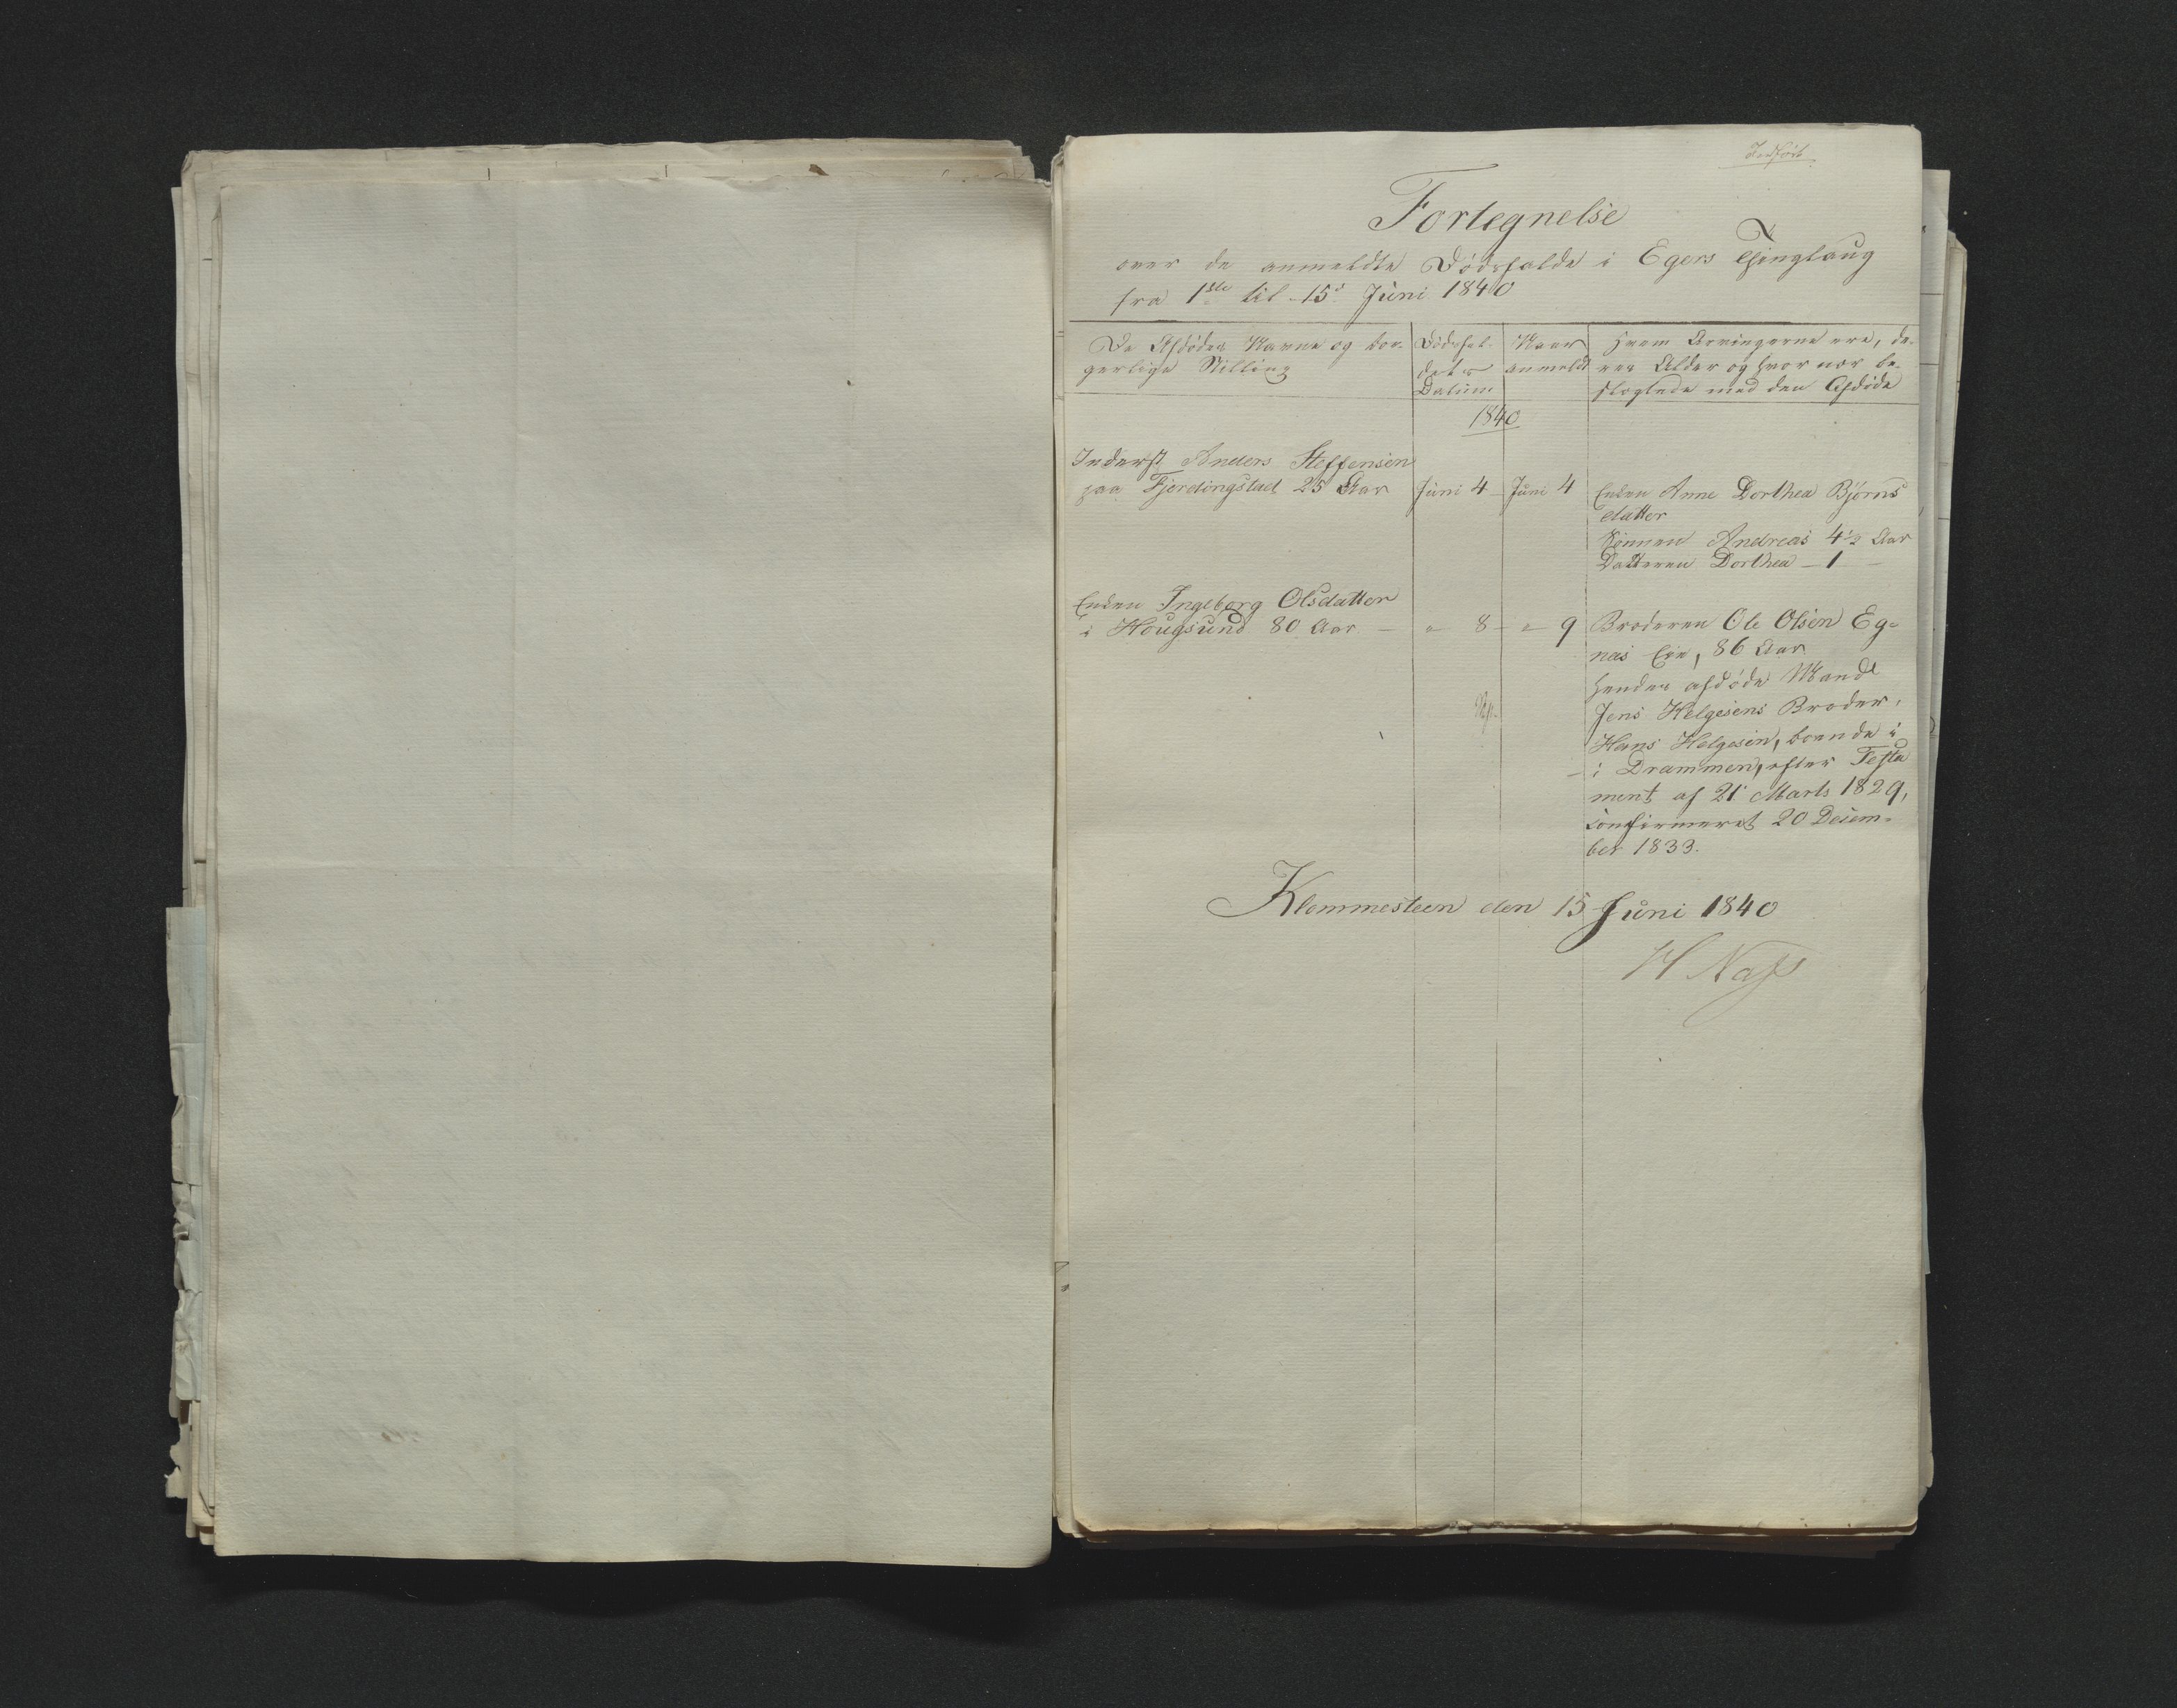 Indført
Fortegnelse
over de anmeldte Dödsfalde i Egers Thinglaug
fra 1ste til 15de Juni 1840
De Afdödes Navne og bor-
gerlige Stilling
Dödsfal-
dets
Datum
Naar
anmeldt
Hvem Arvingerne ere, de-
res Alder og hvor nær be-
slægtede med den Afdöde
1840
Inderst Anders Steffensen
paa Fjerdingstad 25 Aar
Juni 4
Juni 4
Enken Anne Dorthea Björns
datter
Sönnen Andreas 4 1/2 Aar
Datteren Dorthea - 1 -
Enken Ingeborg Olsdatter
i Hougsund 80 Aar -
" 8
" 9
Broderen Ole Olsen Eg-
næs Eie, 86 Aar
Hendes afdöde Mand
Jens Helgesens Broder,
Hans Helgesen, boende i
i Drammen, efter Testa
ment af 21 Marts 1829,
confirmeret 20 Decem-
ber 1833.
Klommesteen den 15 Juni 1840